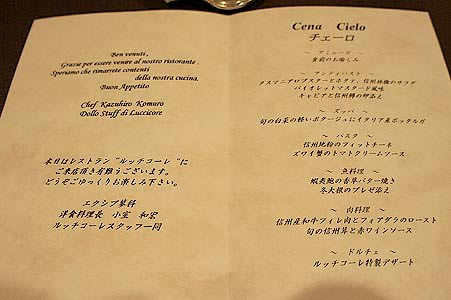 Ben venuti,
Grazie per essere venire al nostro ristorante.
Speriamo che rimarrete contenti
della nostra cucina.
Buon Appetito
Chef Kazuhiro Komuro
Dollo Stuff di Luccicore
本日はレストラン “ルッチコーレ “に
ご来店頂き有難うございます。
どうぞごゆっくりお楽しみ下さい。
エクシブ蓼科
洋食料理長 小室 和宏
ルッチコーレスタッフ一同
Cena Cielo
チェーロ
～ アミューゼ ～
食前のお愉しみ
～ アンティパスト ～
タスマニアロブスターとホタテ、信州林檎のサラダ
バイオレットマスタード風味
キャビアと信州鱒の卵添え
～ ズッパ ～
旬の白菜の軽いポタージュにイタリア産ボッタルガ
～ パスタ ～
信州地粉のフィットチーネ
ズワイ蟹のトマトクリームソース
～ 魚料理 ～
蝦夷鮑の香草バター焼き
冬大根のブレゼ添え
～ 肉料理 ～
信州産和牛フィレ肉とフォアグラのロースト
旬の信州茸と赤ワインソース
～ ドルチェ ～
ルッチコーレ特製デザート